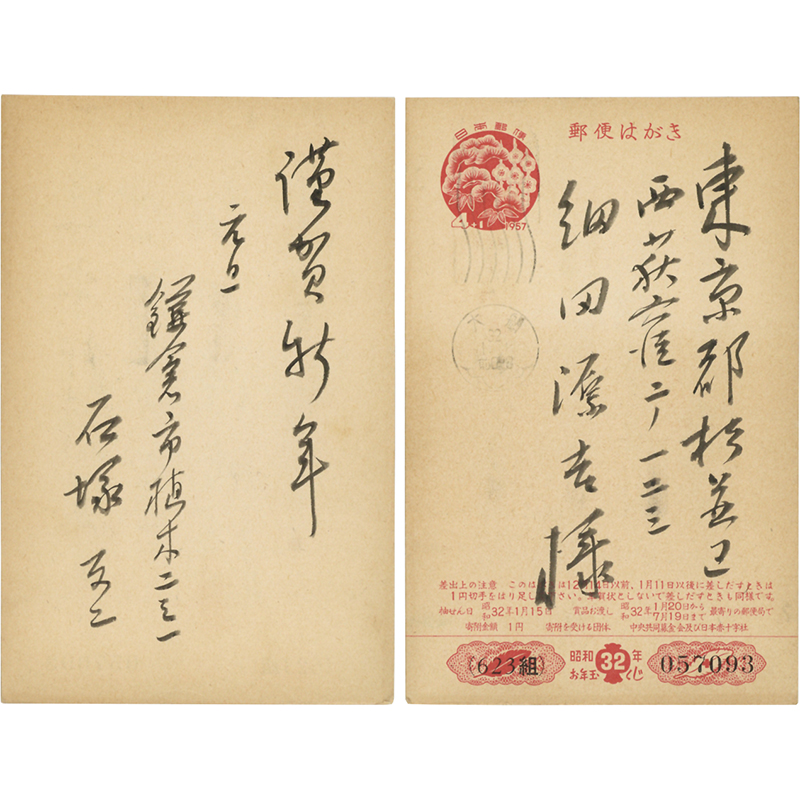 謹賀新年
元旦
鎌倉市植木二三一
石塚友二
郵便はがき
日本郵便
4+1
1957
東京都杉並区
西荻窪二ノ一二三
細田源吉様
差出上の注意 このはがきは12月14日以前、1月11日以後に差しだすときは
1円切手をはり足してください。年賀状としないで差しだすときも同様です。
抽せん日 昭和32年1月15日 賞品お渡し 昭和32年1月20日から7月19日まで 最寄りの郵便局で
寄附金額 1円 寄附を受ける団体 中央共同募金会及び日本赤十字社
623組
昭和32年
お年玉くじ
057093